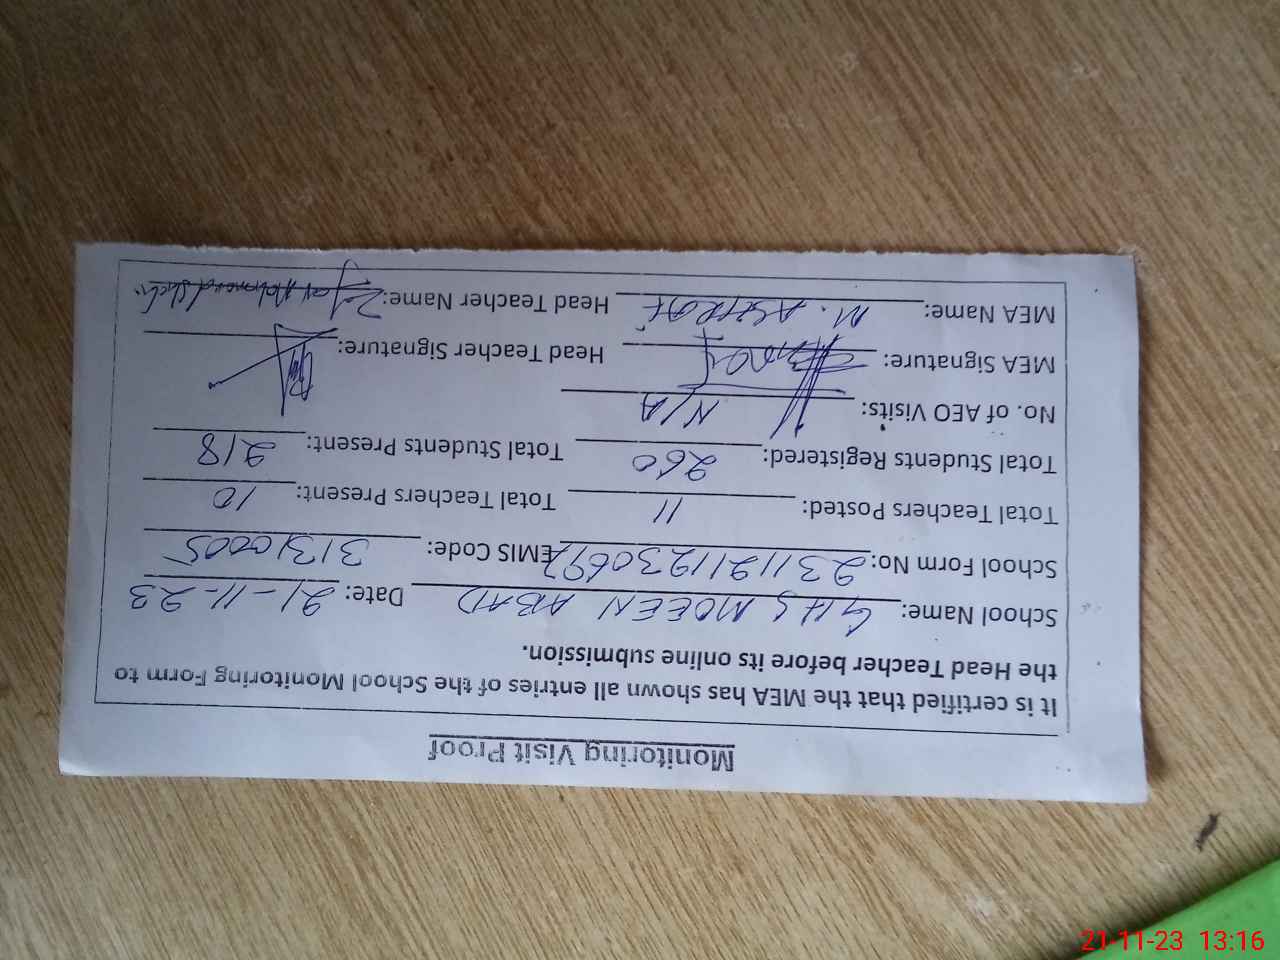 Monitoring Visit Proof
It is certified that the MEA has shown all entries of the School Monitoring Form to
the Head Teacher before its online submission.
School Name: GHS MOEEN ABAD Date: 21-11-23
School Form No: EMIS Code: 31310005
Total Teachers Posted: 11 Total Teachers Present: 10
Total Students Registered: 260 Total Students Present: 218
No. of AEO Visits: N/A
MEA Signature: Head Teacher Signature:
MEA Name: M. ASHRAF Head Teacher Name:
21-11-23 13:16